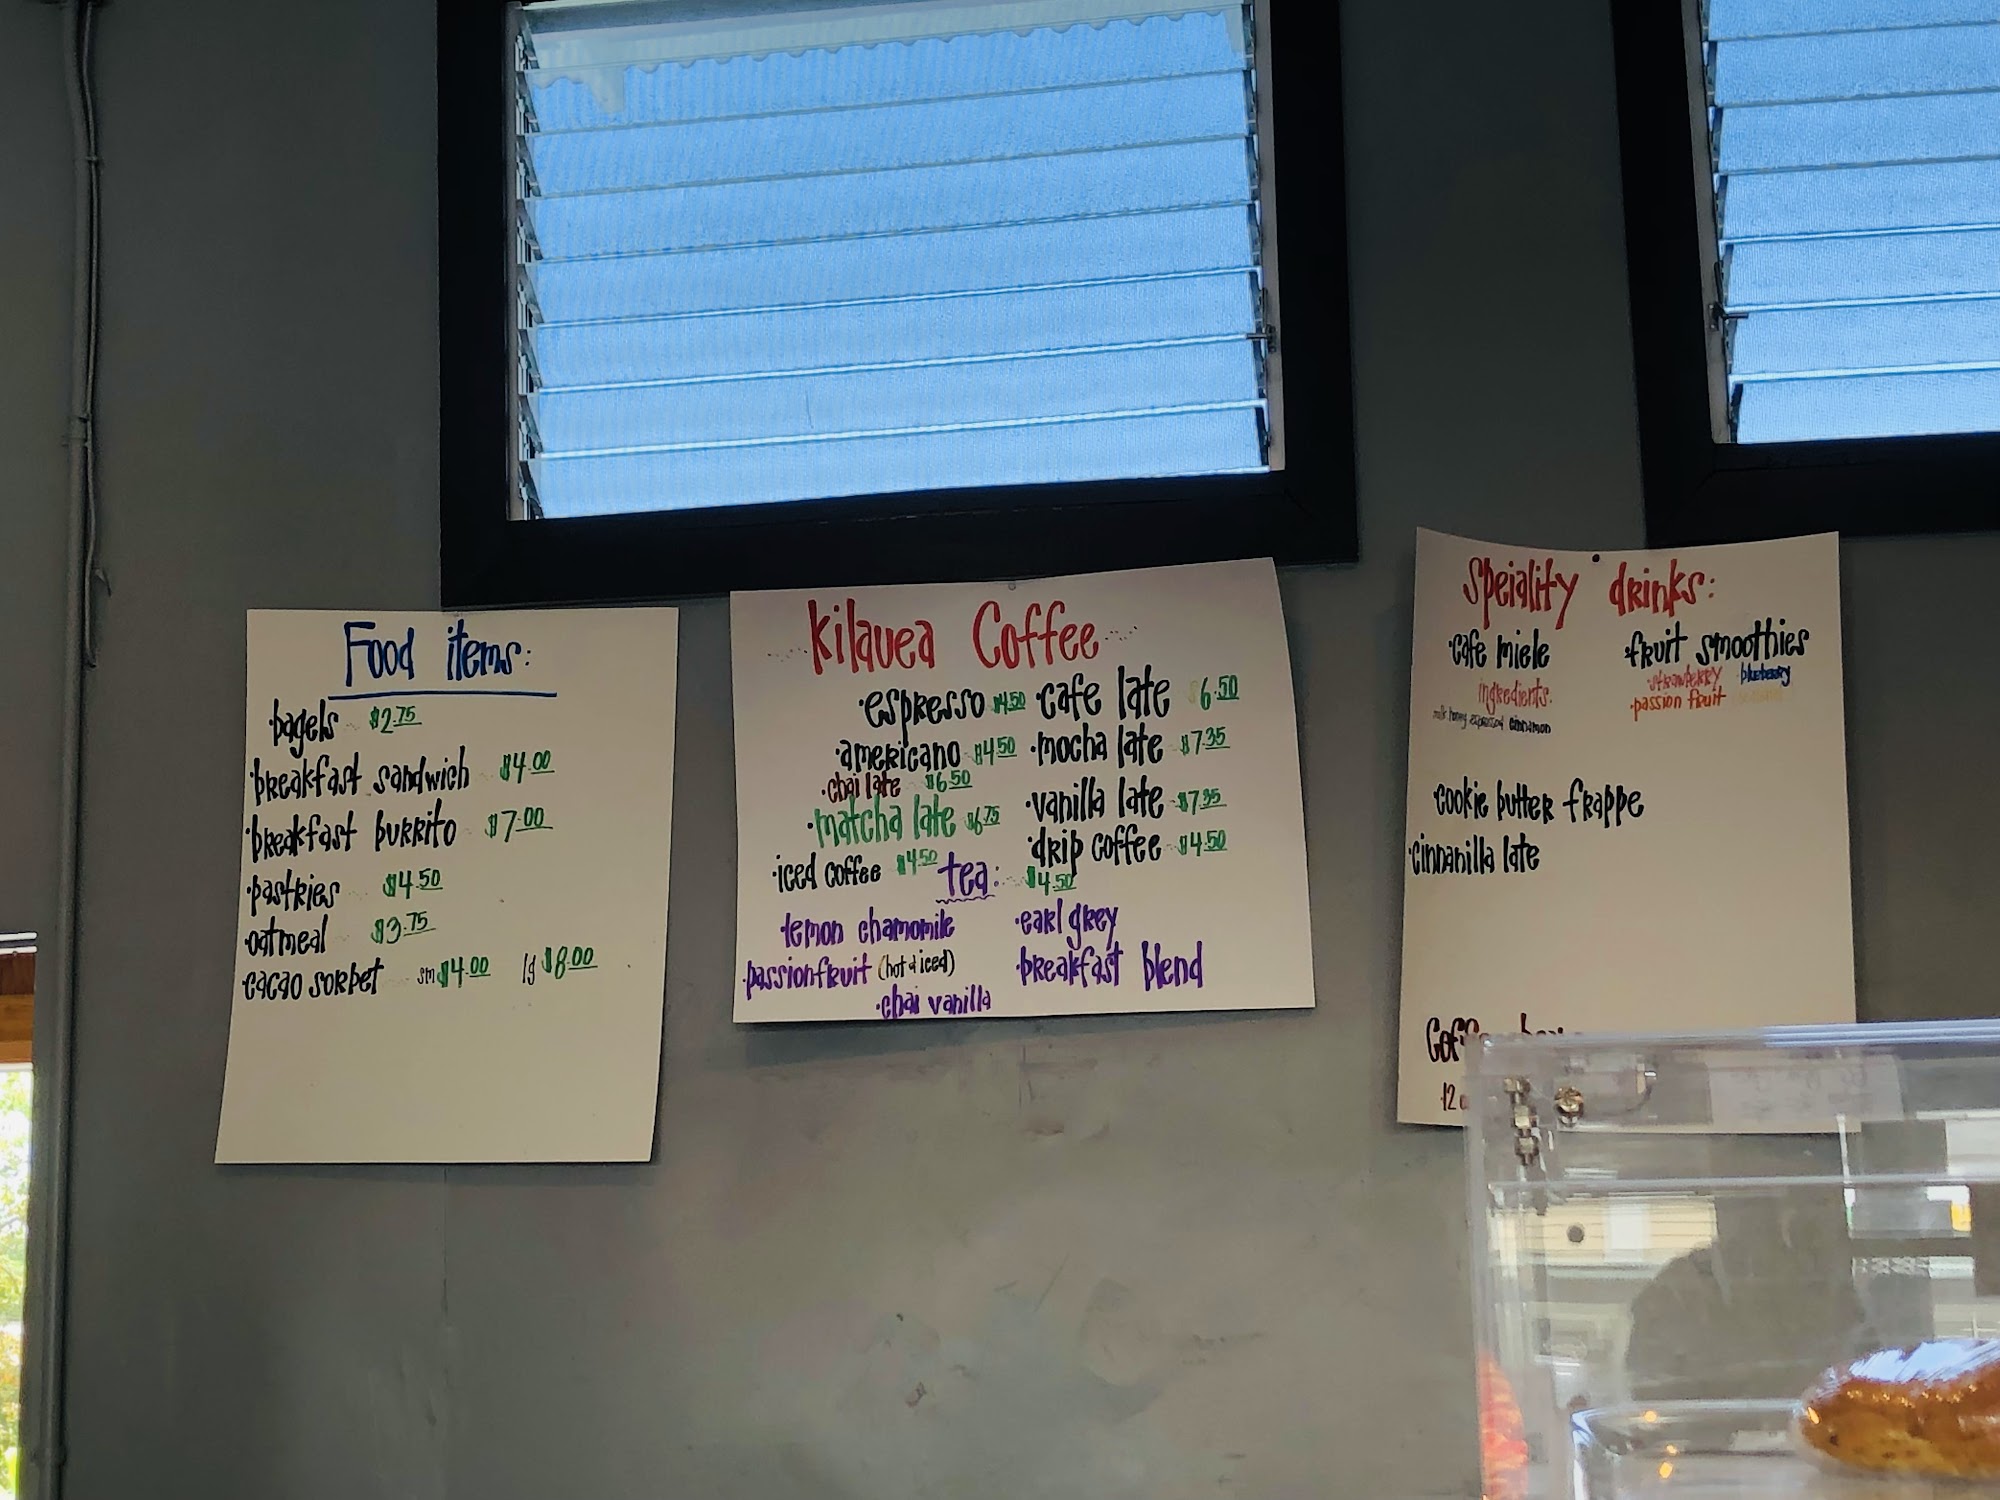 Food items:
·bagels $2.75
·breakfast sandwich $4.00
·breakfast burrito $7.00
·pastries $4.50
·oatmeal $3.75
·cacao sorbet sm $4.00 lg $8.00
Kilauea Coffee
·espresso $4.50 ·cafe late $6.50
·americano $4.50 ·mocha late $7.35
·chai late $6.50
·matcha late $6.75 ·vanilla late $7.35
·iced coffee $4.50 ·drip coffee $4.50
tea: $4.50
·lemon chamomile ·earl grey
·passionfruit (hot & iced) ·breakfast blend
·chai vanilla
Speiality drinks:
·cafe miele ·fruit smoothies
ingredients: ·strawberry ·blueberry
milk honey cinnamon ·passion fruit
·cookie butter frappe
·cinnanilla late
12